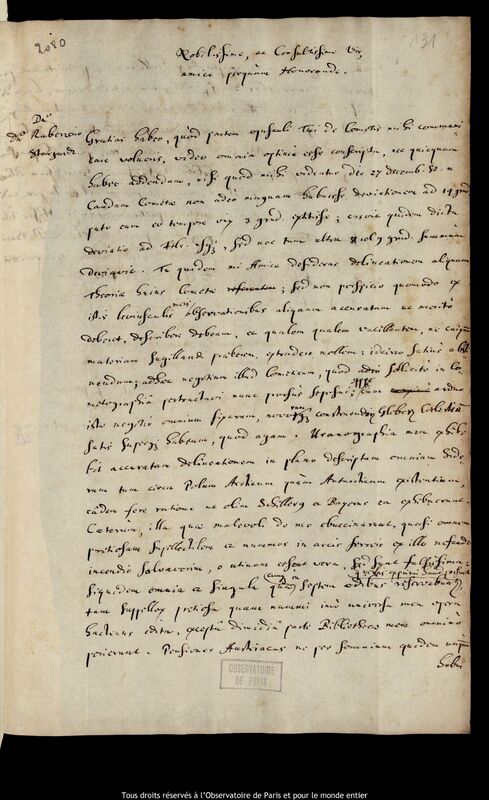 2080
131
Nobilissime, ac Consultissime Vir
amice perquam Honorande.
Dn.
Dn. Rubeneno
Stargardt
Gratias habeo, quod partem opusculi Tui de Cometis mihi communi
care volueris, video omnia optime esse conscripta, nec quicquam
habeo addendum, nisi quod mihi videatur die 27 decemb:
Caudam Cometae non adeo magnam habuisse deviationem ad 14 grad
puto eam eo tempore vix 3 grad. extitisse; crevit quidem dicta
deviatio ad Febr. usq; sed nec tum ultra 8 vel 9 grad. summum
deviavit. Tu quidem mi Amice desideras delineationem aliquam
Theoriae huius Cometae; sed non perspicio quomodo ex
istis levioribus meis observationibus aliquam accuratam ut merito
deberet, describere debeam, et qualem qualem vacillantem, ne cuiquam
materiam sugillandi praeberem, ostendere nollem; idcirco satius
adhuc negotium illud Cometicum, quod sollicite in Co
metographia pertractavi nunc prorsus seposui; cum arduo
isto negotio omnium fixarum, construendorumq; Globorum Coelestium
satis superq; habeam, quod agam. Uranographia mea exhibe
bit accuratam delineationem in plano descriptam omnium side
rum tam circa Polum Arcticum quam Antarcticum existentium,
eadem fere ratione ut olim Schillerus et Bayerus ea exhibuerunt.
Caeterum, illa quae malevoli de me ebuccinarunt, quasi omnem
pretiosam supellectilem et nummos in arcis ferreis ex illo nefando
incendio salvaverim, o utinam essent vera, sed sunt falsissima:
siquidem omnia et singula quae in septem aedibus reservabantur
tam supellex pretiosa quam nummi imo universa mea opera
hactenus edita, excepta dimidia parte Bibliothecae meae omnino
perierunt. Pensiones Austriacas ne per somnium quidem unquam
habui
OBSERVATOIRE
DE PARIS
Tous droits réservés à l'Observatoire de Paris et pour le monde entier